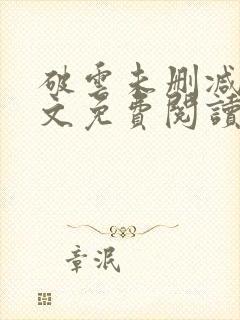 破雲未刪減
文免費閱讀
章泯